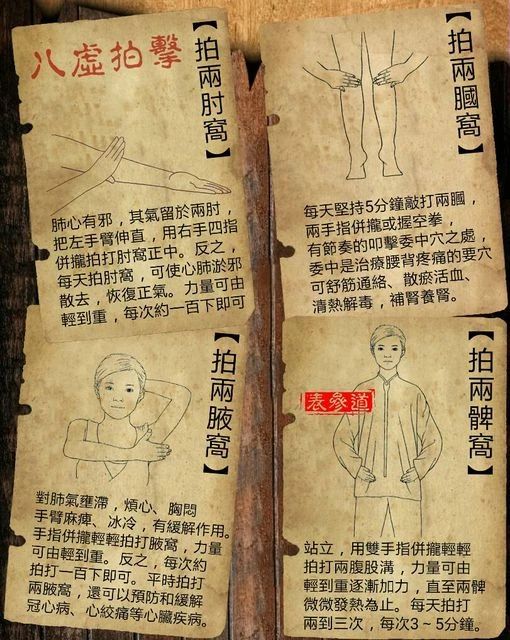 八虛拍擊
【拍兩肘窩】
肺心有邪，其氣留於兩肘，
把左手臂伸直，用右手四指
併攏拍打肘窩正中。反之，
每天拍肘窩，可使心肺淤邪
散去，恢復正氣。力量可由
輕到重，每次約一百下即可
【拍兩膕窩】
每天堅持5分鐘敲打兩膕，
兩手指併攏或握空拳，
有節奏的叩擊委中穴之處，
委中是治療腰背疼痛的要穴
可舒筋通絡、散瘀活血、
清熱解毒，補腎養腎。
【拍兩腋窩】
對肺氣壅滯，煩心、胸悶
手臂麻痺、冰冷，有緩解作用。
手指併攏輕輕拍打腋窩，力量
可由輕到重。反之，每次約
拍打一百下即可。平時拍打
兩腋窩，還可以預防和緩解
冠心病、心絞痛等心臟疾病。
【拍兩髀窩】
表參道
站立，用雙手指併攏輕輕
拍打兩腹股溝，力量可由
輕到重逐漸加力，直至兩髀
微微發熱為止。每天拍打
兩到三次，每次3～5分鐘。